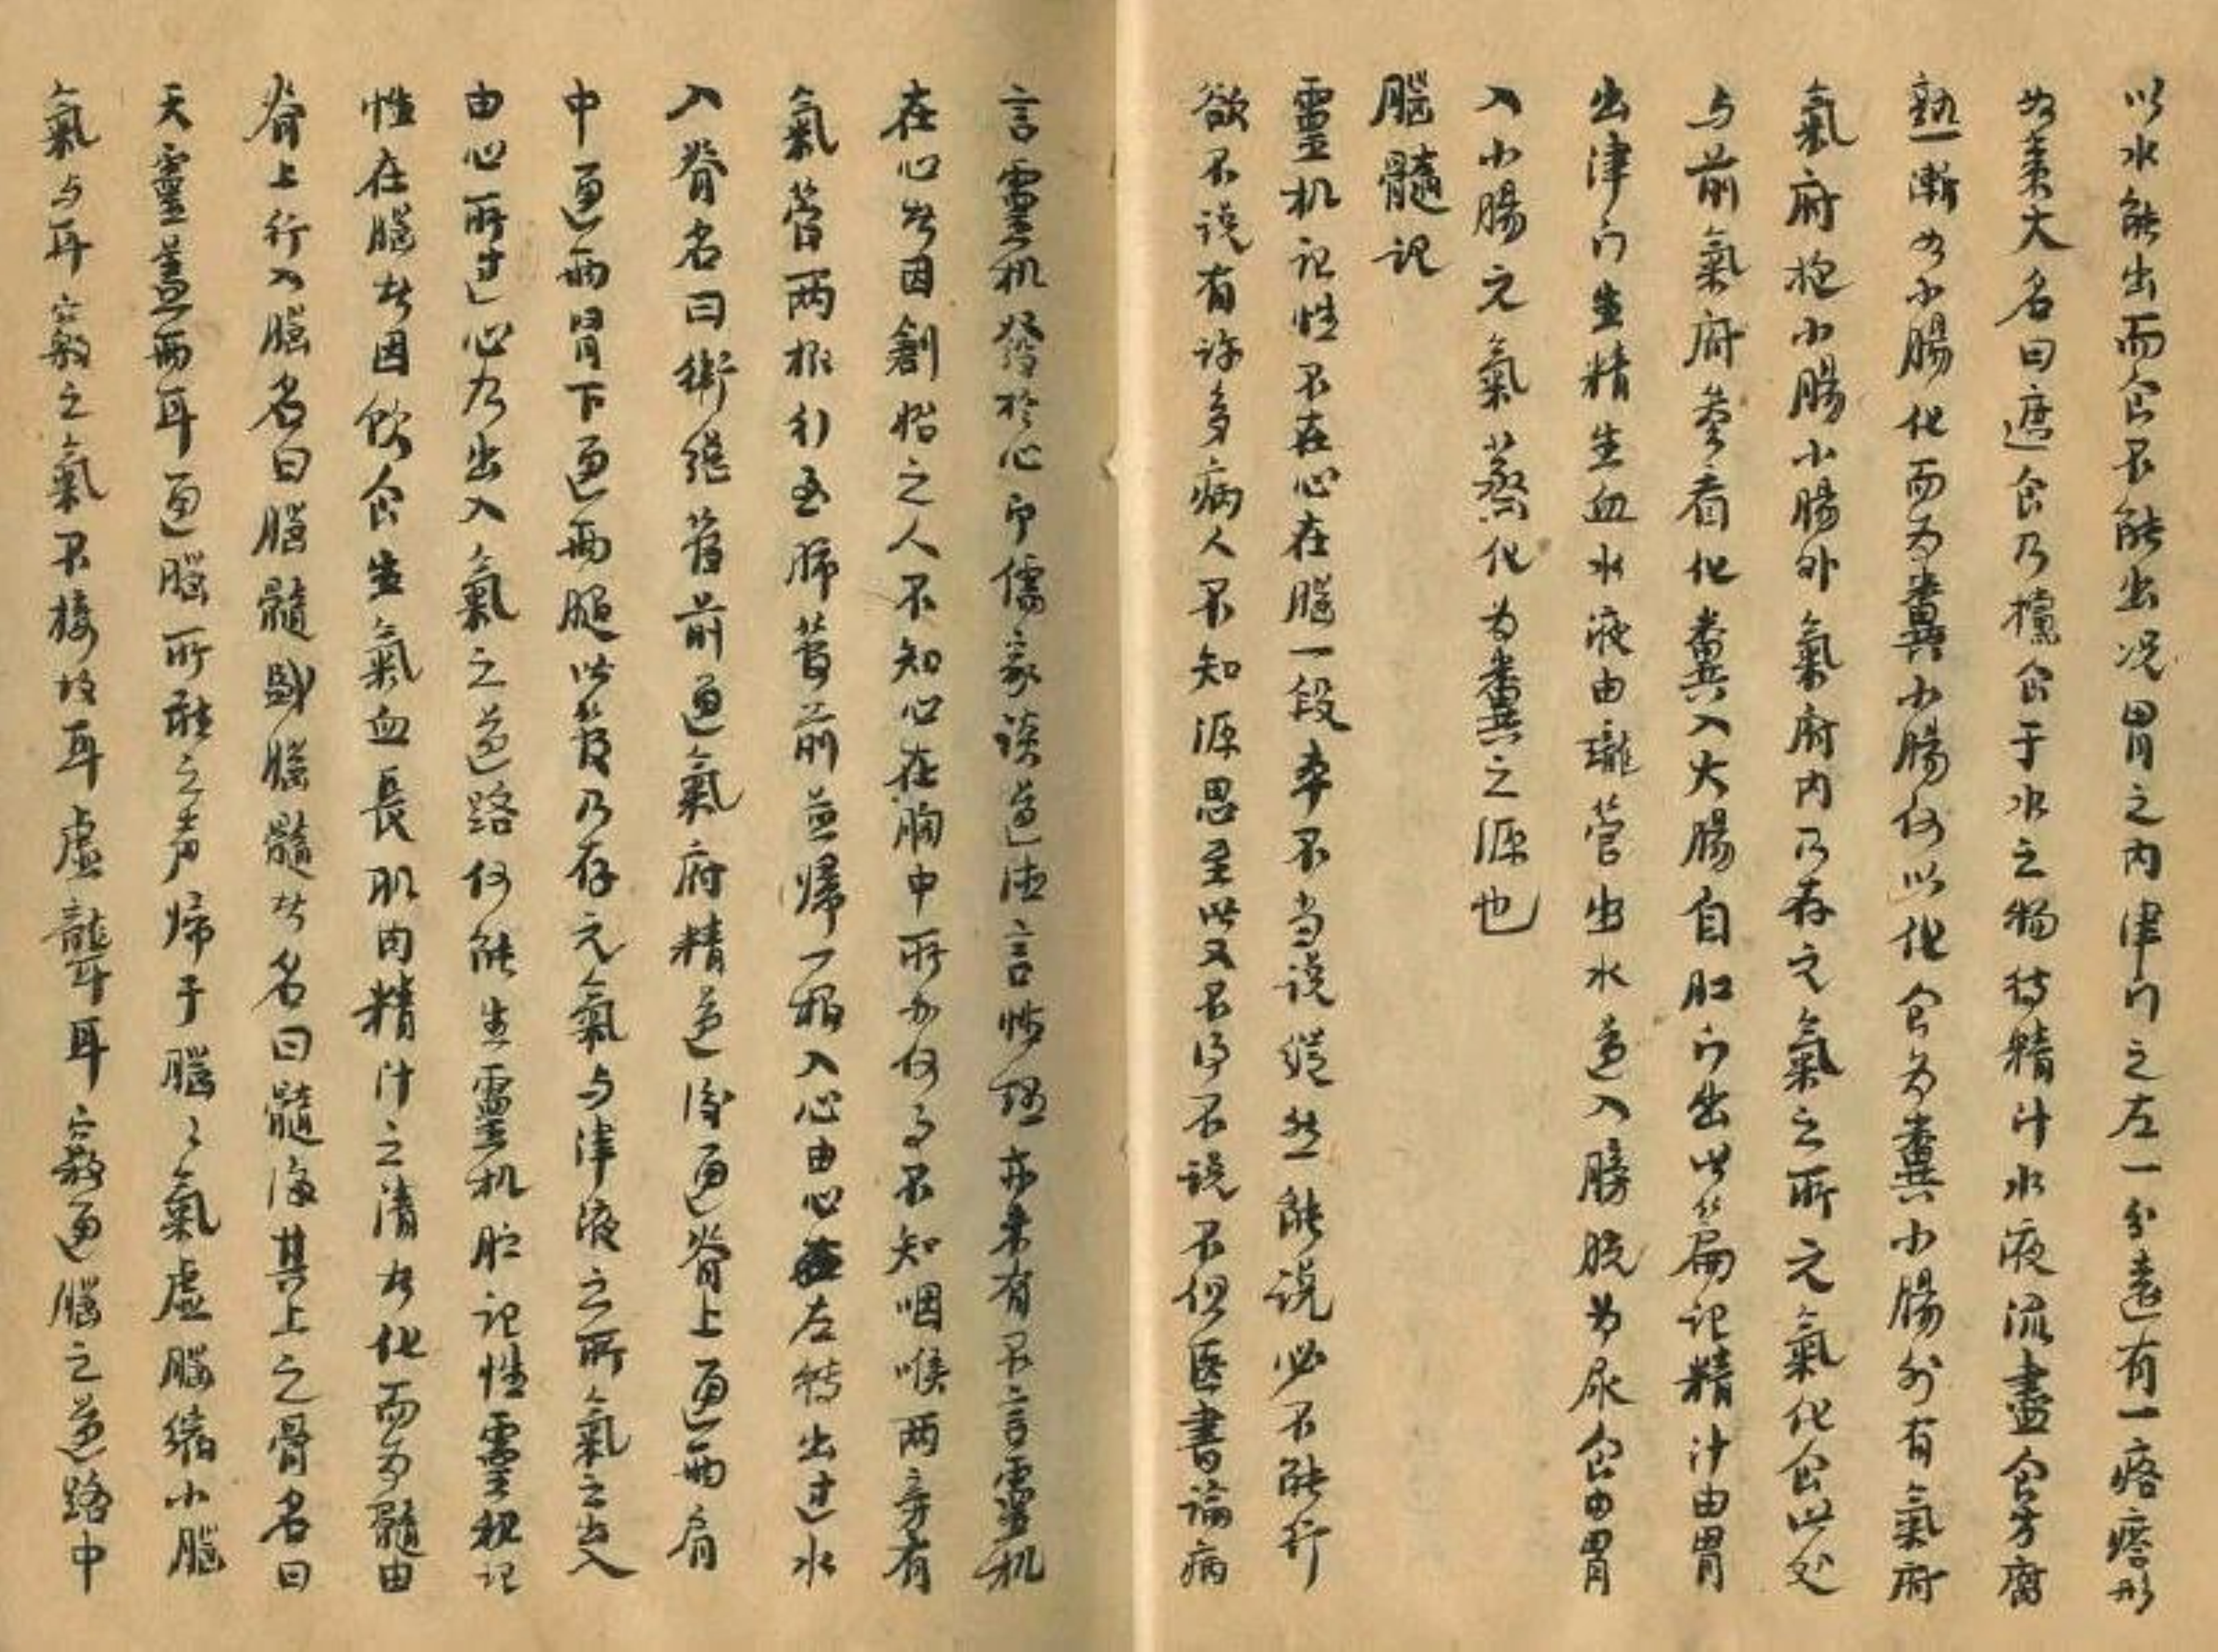 以水能出而食不能出况胃之内津门之左一分遠有一疙瘩形
如枣大名曰遮食乃攩食于水之物待精汁水液流盡食方腐
熟漸入小腸化而为糞小腸何以化食为糞小腸外有氣府
氣府抱小腸小腸外氣府内乃存元氣之所元氣化食此处
与前氣府叅看化糞入大腸自肛门出此篇记精汁由胃
出津门生精生血水液由瓏管出水道入膀胱为尿食由胃
入小腸元氣蒸化为糞之源也
腦髓记
靈机记性不在心在腦一段本不当说縂然能说必不能行
欲不说有许多病人不知源思至此又不得不说不但医書論病
言靈机發於心即儒家談道德言性理亦未有不言靈机
在心者因創始之人不知心在胸中所办何事不知咽喉两旁有
氣管两根行至肺管前並歸一根入心由心左转出过水
入脊名曰衛縂管前通氣府精道後通脊上通两肩
中通两肾下通两腿此管乃存元氣与津液之所氣之出入
由心所过心乃出入氣之道路何能生靈机貯记性靈机记
性在腦者因飲食生氣血長肌肉精汁之清者化而为髓由
脊上行入腦名曰腦髓盛腦髓者名曰髓海其上之骨名曰
天靈盖两耳通腦所聴之声歸于腦々氣虚腦缩小腦
氣与耳竅之氣不接故耳虚聾耳竅通腦之道路中